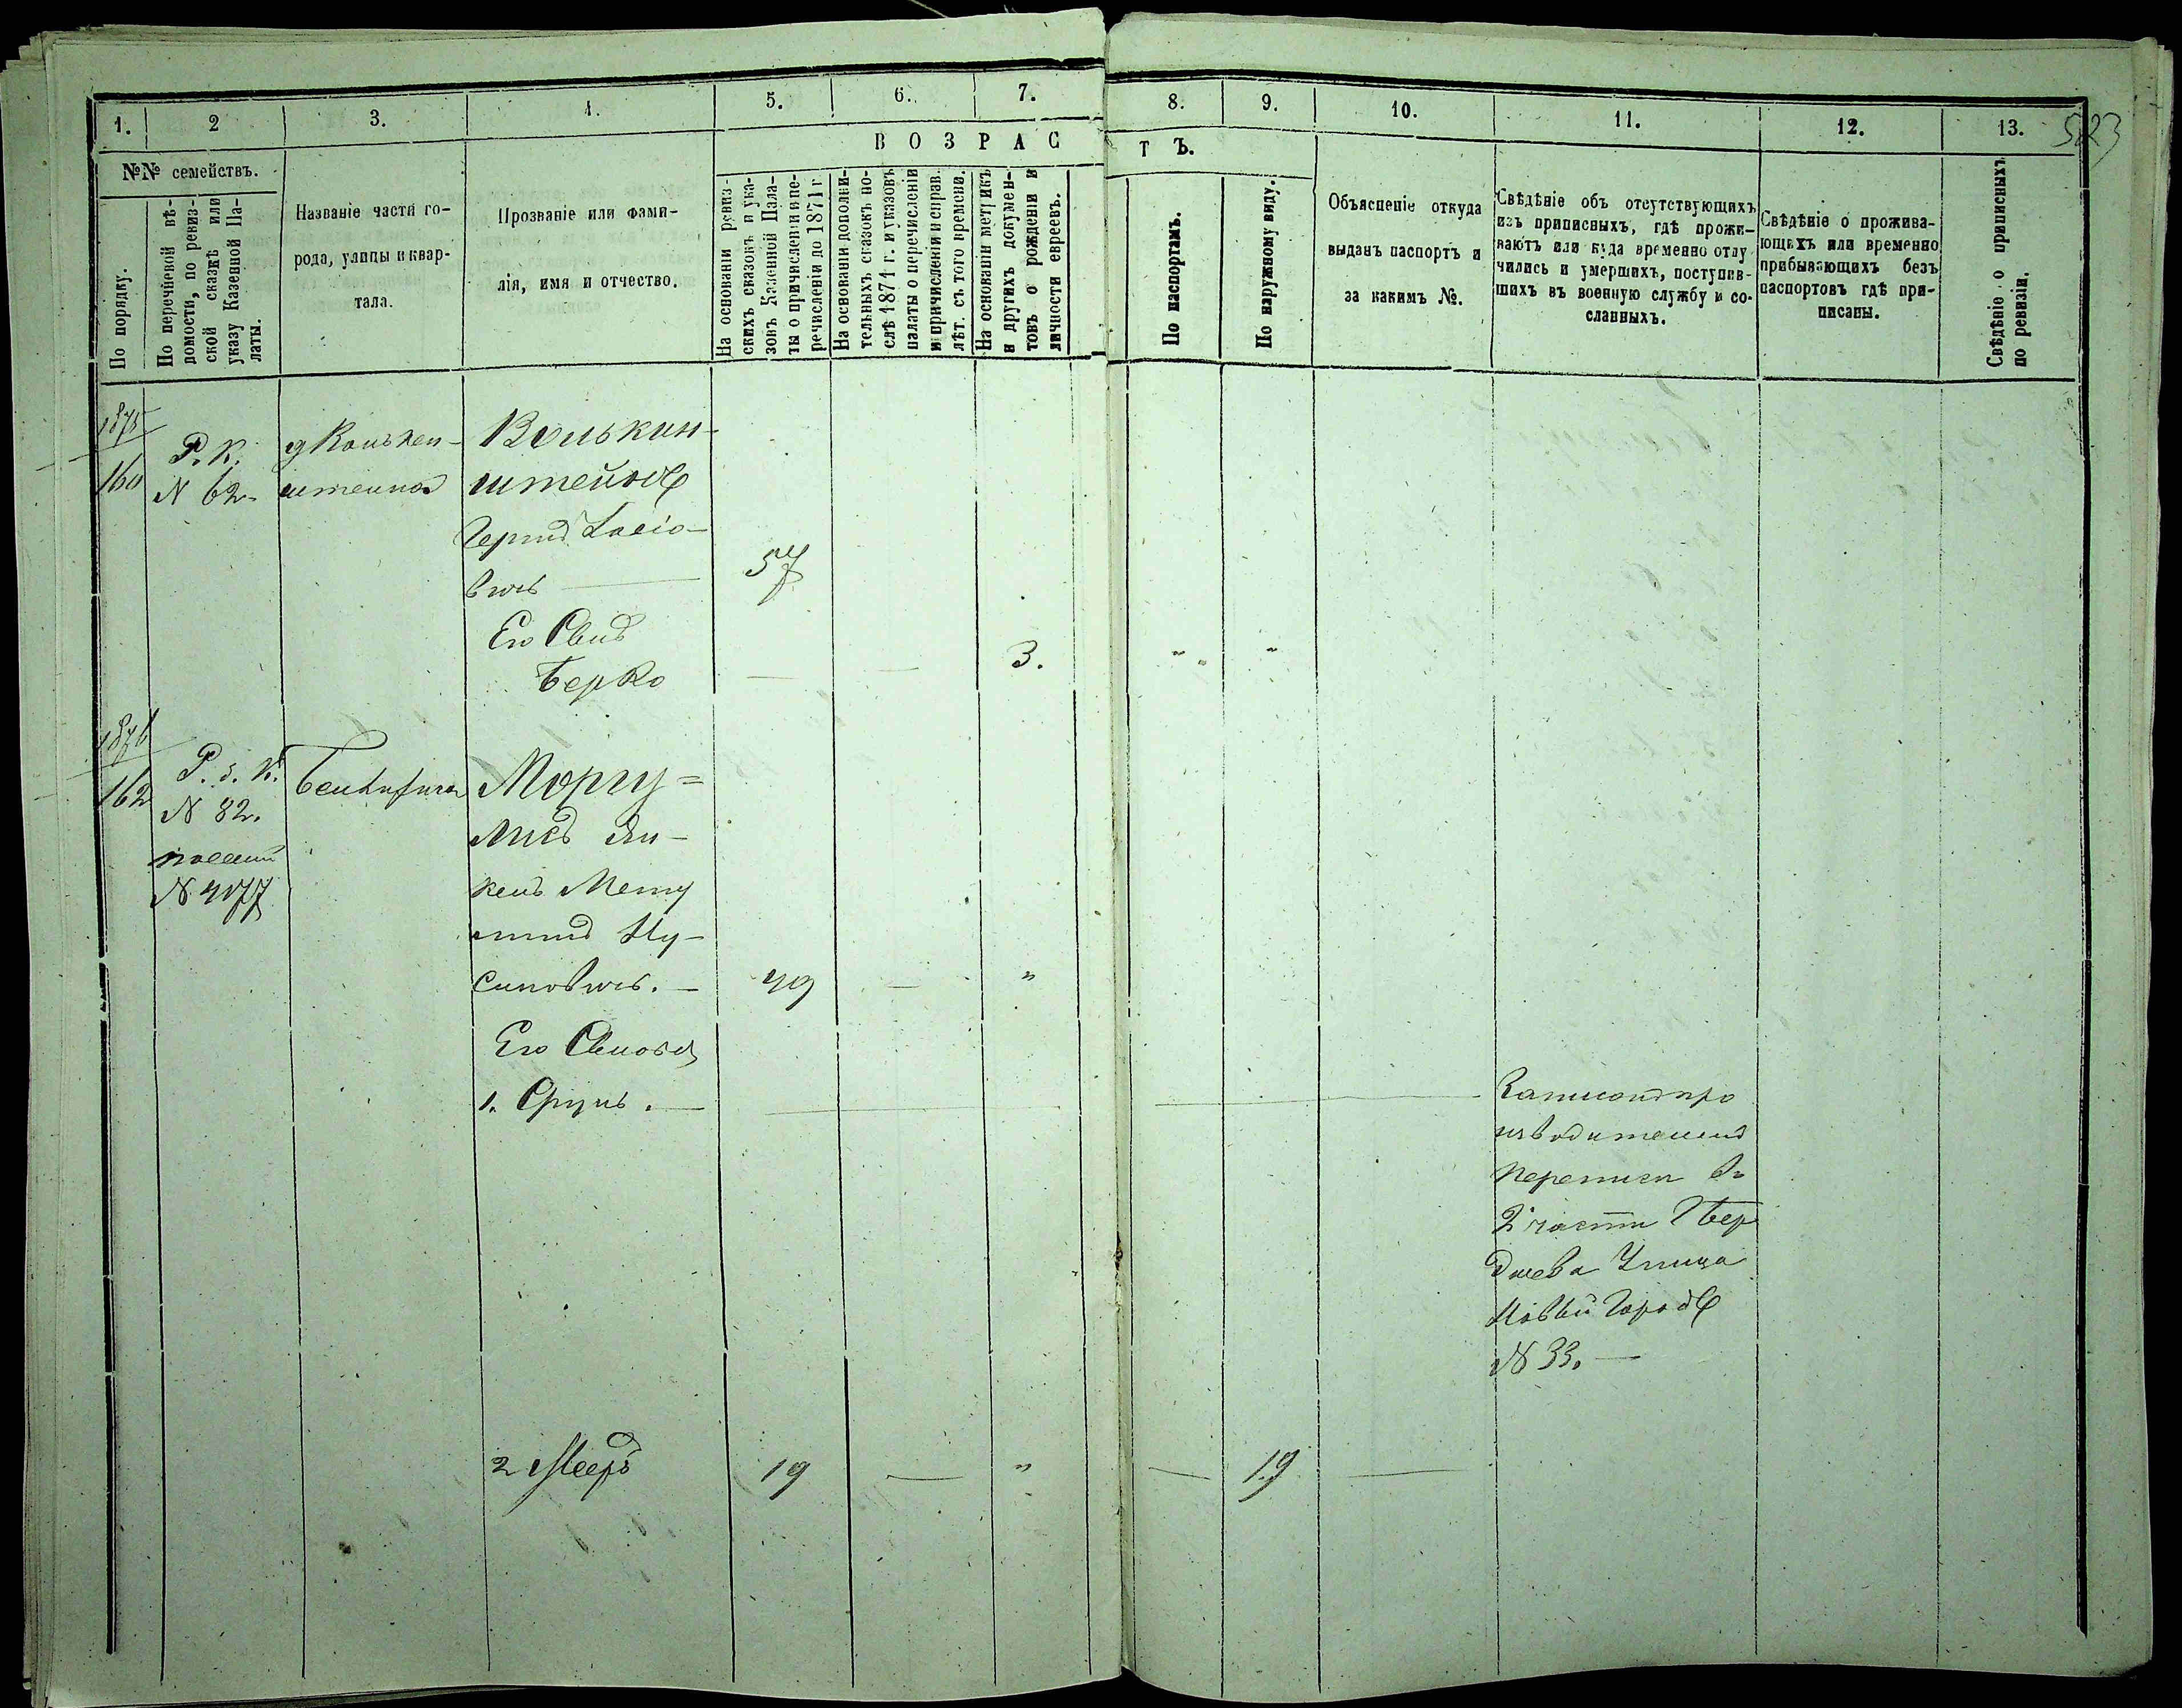 1.
2
3.
4.
5.
6.
7.
8.
9.
10.
11.
12.
13.
523
В О З Р А С
Т Ъ.
№№ семействъ.
По порядку.
По перечневой вѣ-
домости, по ревиз-
ской сказкѣ или
указу Казенной Па-
латы.
Названіе части го-
рода, улицы и квар-
тала.
Прозваніе или фами-
лія, имя и отчество.
На основаніи ревиз-
скихъ сказокъ и ука-
зовъ Казенной Пала-
ты о причисленіи и пе-
речисленіи до 1871 г.
На основаніи дополни-
тельныхъ сказокъ по-
слѣ 1871 г. и указовъ
палаты о перечисленіи
и причисленіи и справ.
лѣт. съ того времени.
На основаніи метрикъ
и другихъ докумен-
товъ о рожденіи и
личности евреевъ.
По паспортамъ.
По наружному виду.
Объясненіе откуда
выданъ паспортъ и
за какимъ №.
Свѣдѣніе объ отсутствующихъ
изъ приписныхъ, гдѣ прожи-
ваютъ или куда временно отлу-
чились и умершихъ, поступив-
шихъ въ военную службу и со-
сланныхъ.
Свѣдѣніе о прожива-
ющихъ или временно
прибывающихъ безъ
паспортовъ гдѣ при-
писаны.
Свѣдѣніе о приписныхъ
по ревизіи.
1875
160
Р. К.
N 62-
Волькин-
штейнъ
вичъ
57
Его Сынъ
Берко
3.
1876
162
Р. д. К.
N 82.
N 4077
Моргу=
лисъ Ян-
кель
Ну-
синовичъ. —
49
Его Сыновья
1. Сруль. —
Записанъ про
изводителемъ
переписи въ
2 части Г Бер
дичева Улица
Новый Городъ
N 33. —
2 Мееръ
19
19